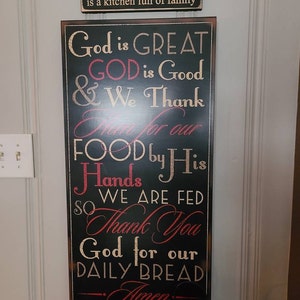 is a kitchen full of family
God is GREAT
GOD is Good
& We Thank
Him for our
FOOD by His
Hands
WE ARE FED
SO Thank You
God for our
DAILY BREAD
Amen